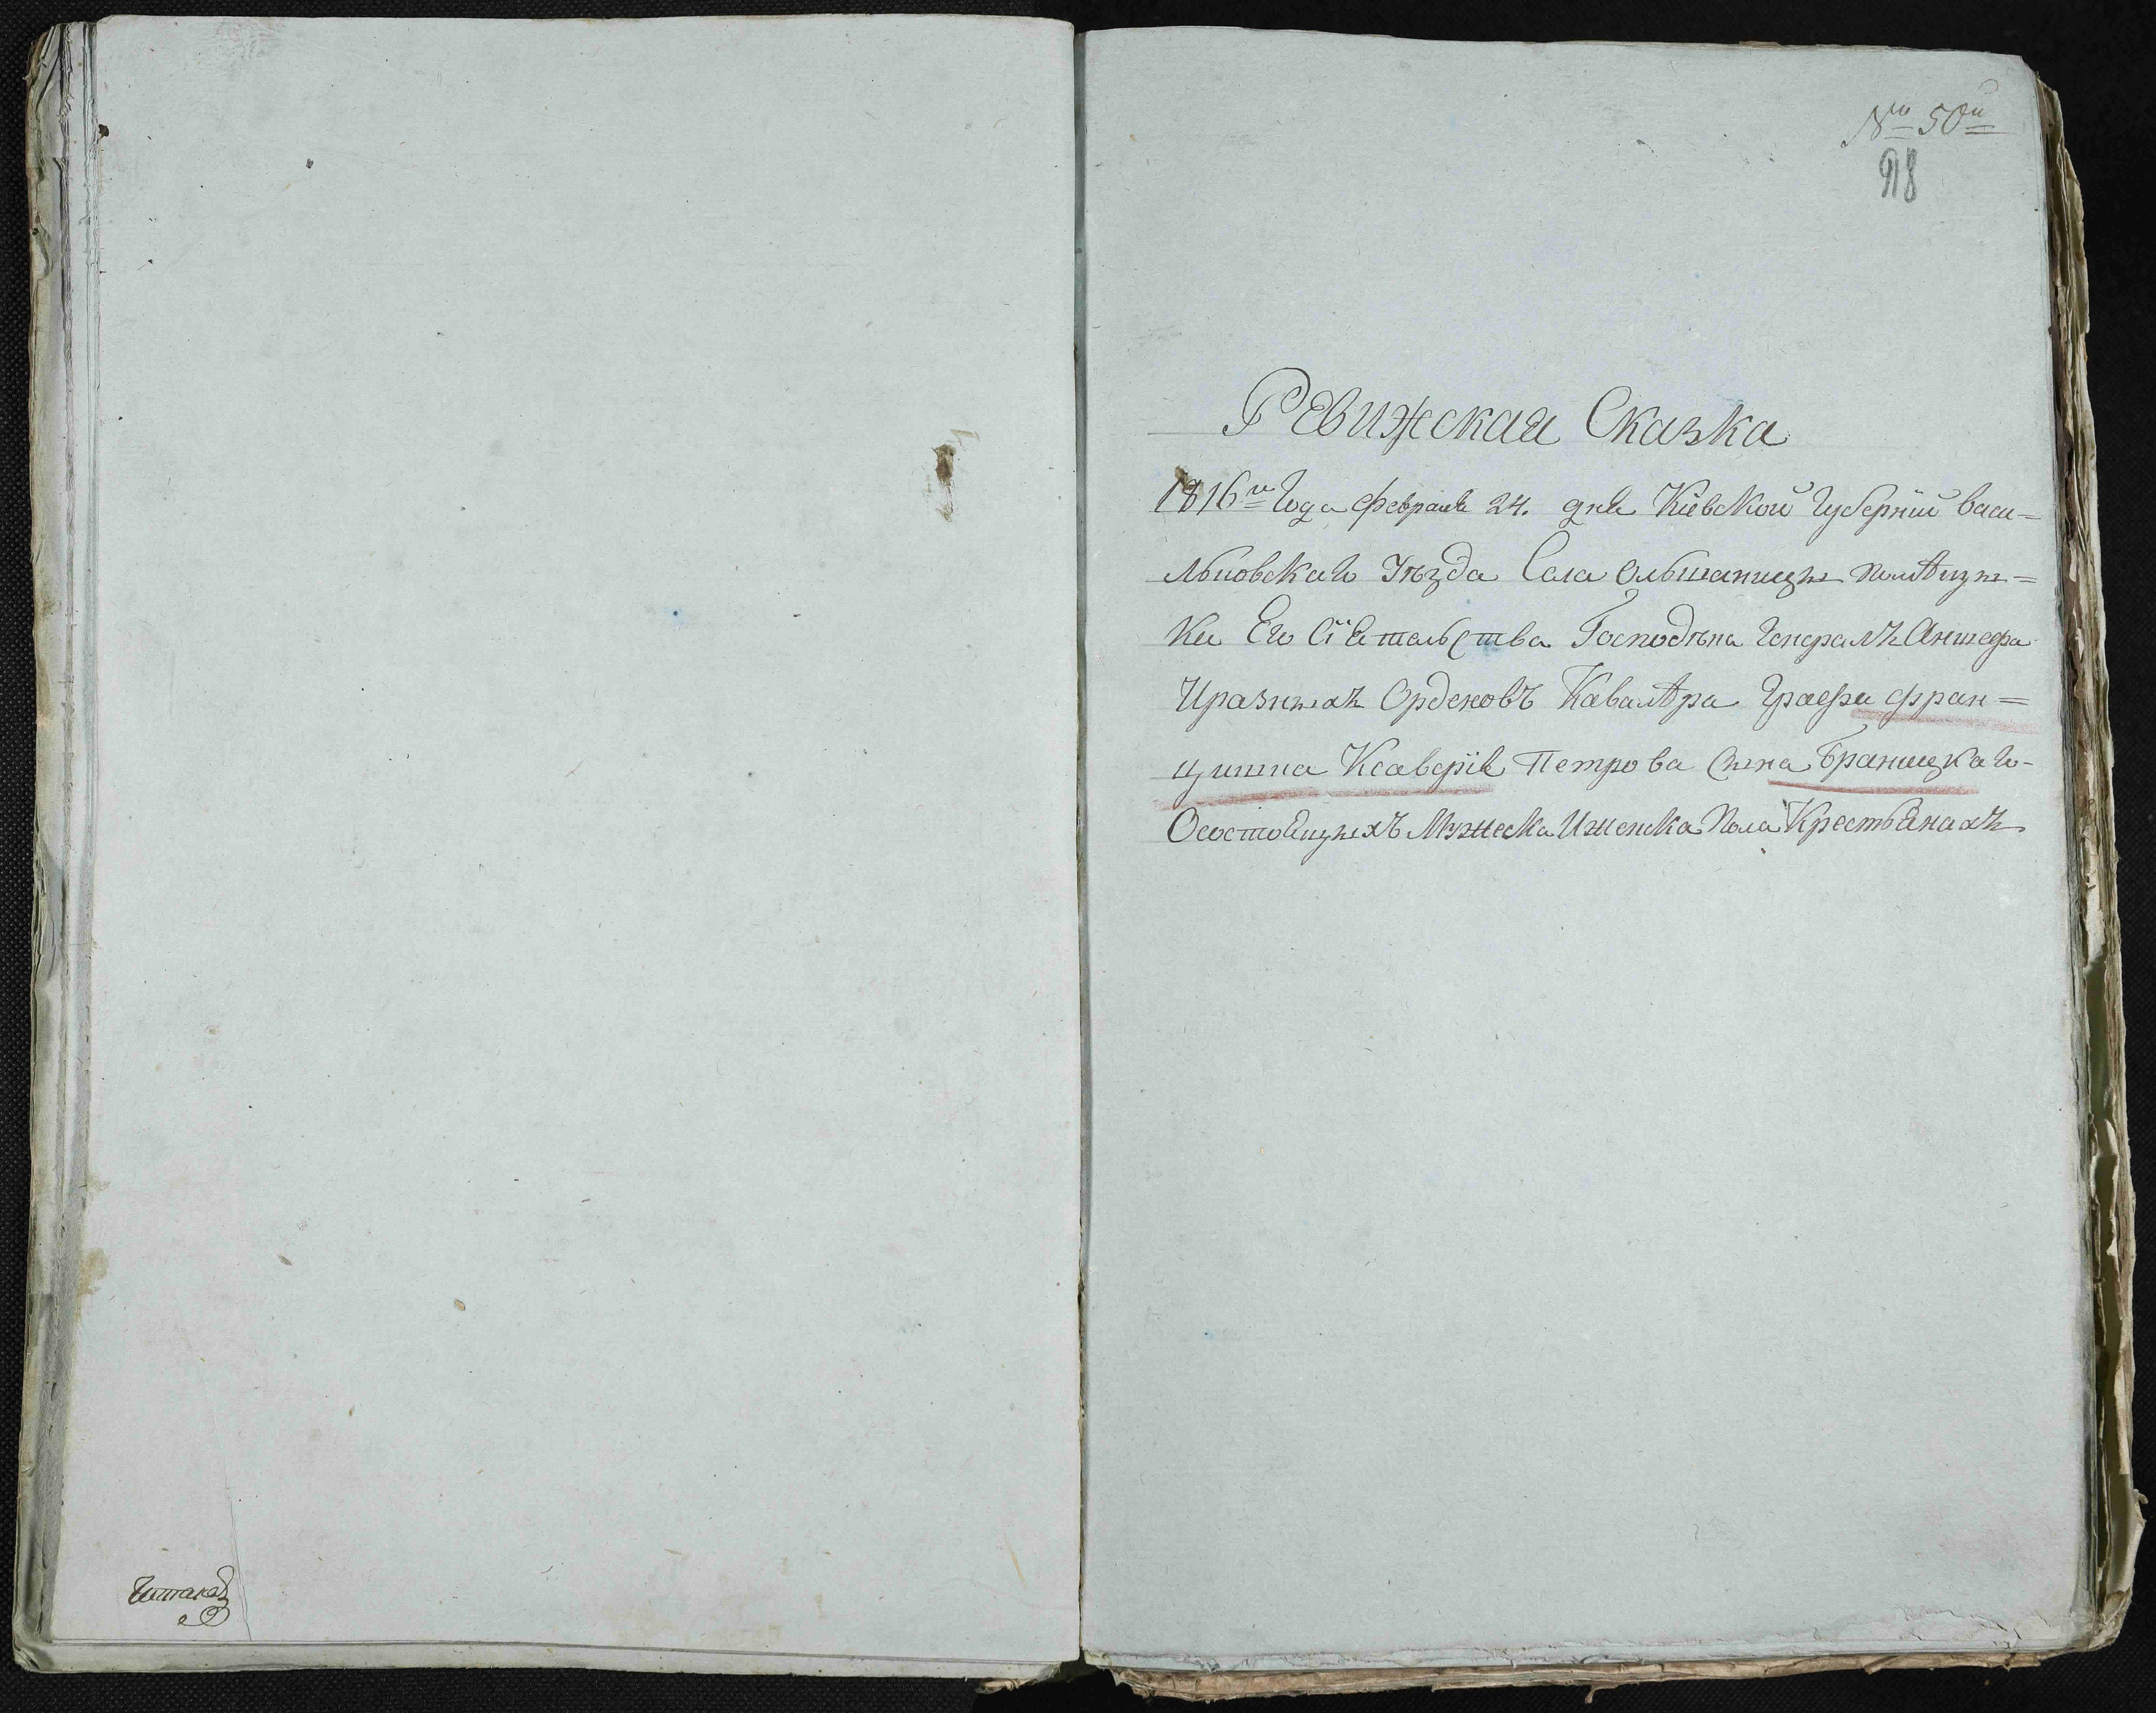 № 50й
98
Ревижская Сказка
1816го Года февраля 24. дня Кіевской Губерніи васи=
льковскаго Уѣзда Села Ольшаницы помѣщи=
ка Его Сіятельства Господина Генералъ Аншефа
И разныхъ Орденовъ Кавалѣра Графа фран=
цишка Ксаверія Петрова Сына Браницкаго-
О состоящихъ Мужеска И женска Пола Крестьянахъ
Читалъ